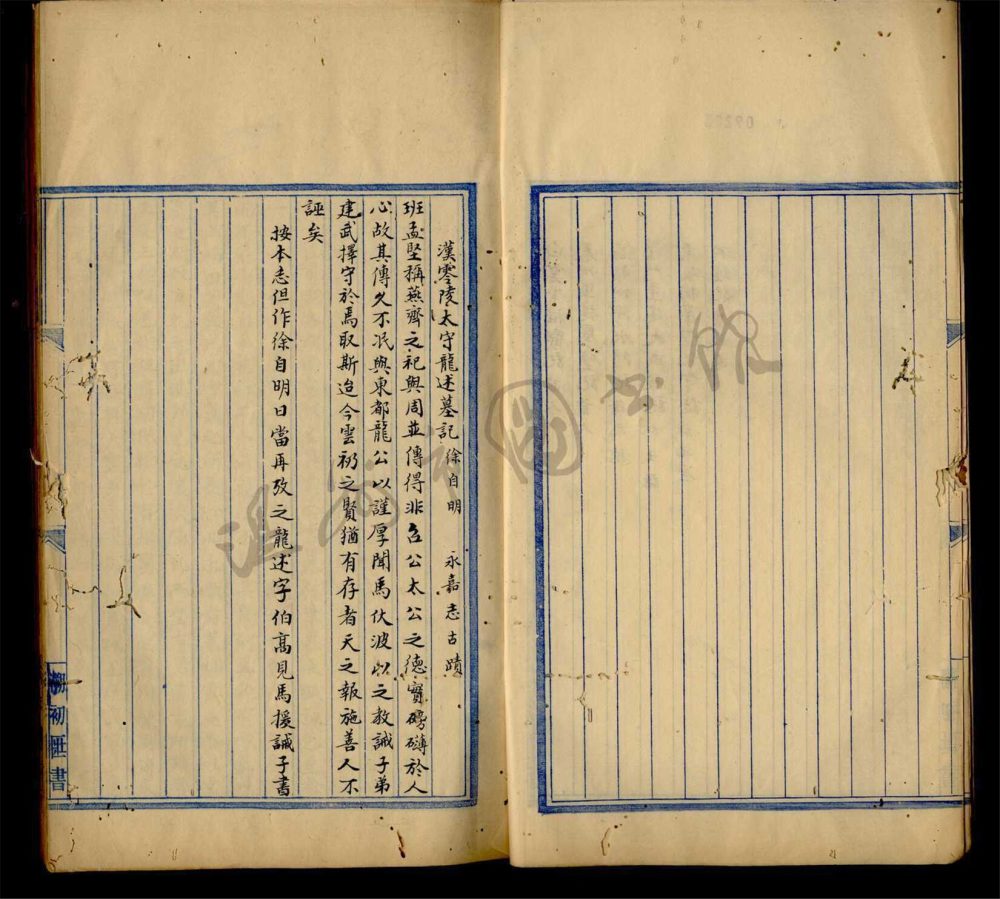 漢零陵太守龍述墓記 徐自明 永嘉志古蹟
班孟堅稱燕齊之祀與周並傳得非召公太公之德實磅礴於人
心故其傳久不泯與東都龍公以謹厚聞馬伏波以之教誡子弟
建武擇守於焉取斯迨今雲礽之賢猶有存者天之報施善人不
誣矣
按本志但作徐自明日當再攷之龍述字伯高見馬援誡子書
初
書
温州市圖书館